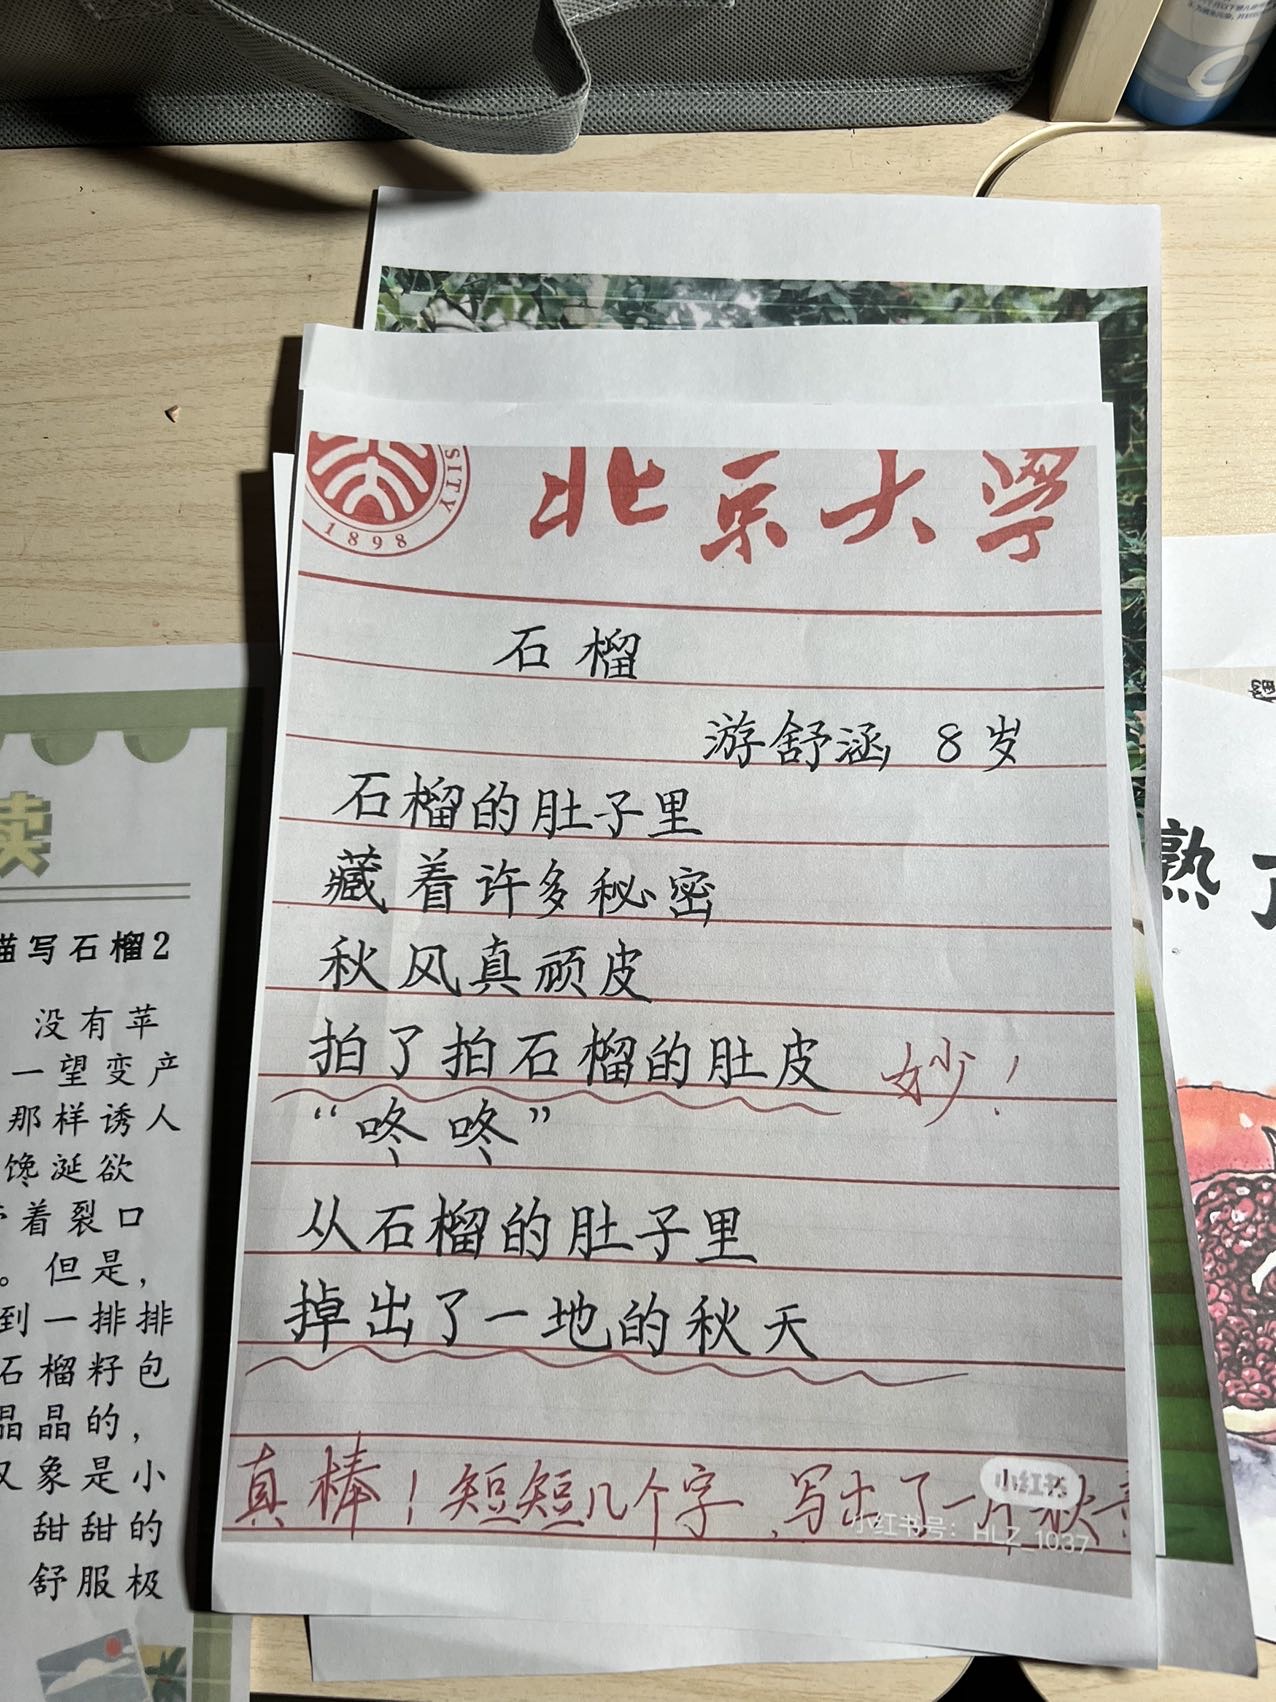 SITY
1898
北京大学
石榴
游舒涵 8岁
石榴的肚子里
藏着许多秘密
秋风真顽皮
拍了拍石榴的肚皮
妙！
“咚咚”
从石榴的肚子里
掉出了一地的秋天
真棒！短短几个字，写出了一片秋
小红书
小红书号：HLZ_1037
读
描写石榴2
没有苹
一望变产
那样诱人
馋涎欲
着裂口
。但是，
到一排排
石榴籽包
晶晶的，
又象是小
甜甜的
舒服极
熟